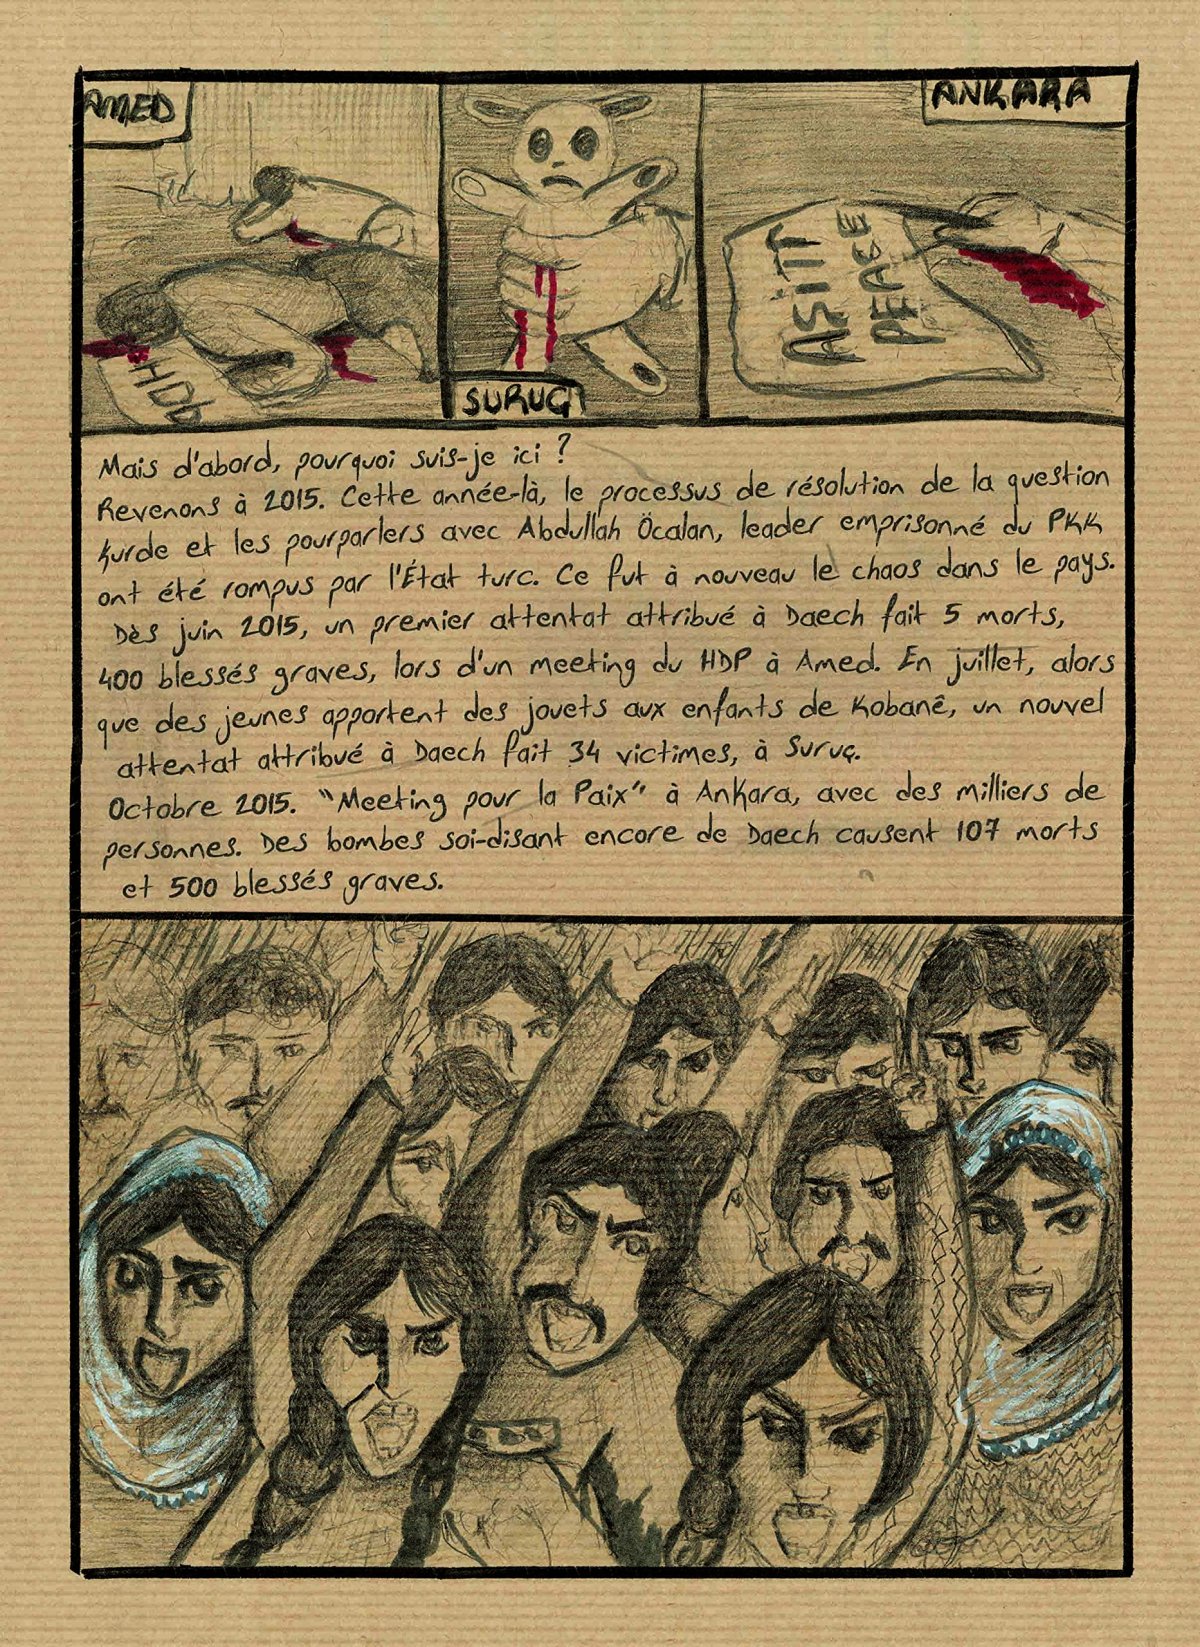 AMED
HDP
SURUÇ
ANKARA
AŞİTİ
PEACE
Mais d'abord, pourquoi suis-je ici ?
Revenons à 2015. Cette année-là, le processus de résolution de la question
kurde et les pourparlers avec Abdullah Öcalan, leader emprisonné du PKK
ont été rompus par l'État turc. Ce fut à nouveau le chaos dans le pays.
Dès juin 2015, un premier attentat attribué à Daech fait 5 morts,
400 blessés graves, lors d'un meeting du HDP à Amed. En juillet, alors
que des jeunes apportent des jouets aux enfants de Kobanê, un nouvel
attentat attribué à Daech fait 34 victimes, à Suruç.
Octobre 2015. "Meeting pour la Paix" à Ankara, avec des milliers de
personnes. Des bombes soi-disant encore de Daech causent 107 morts
et 500 blessés graves.